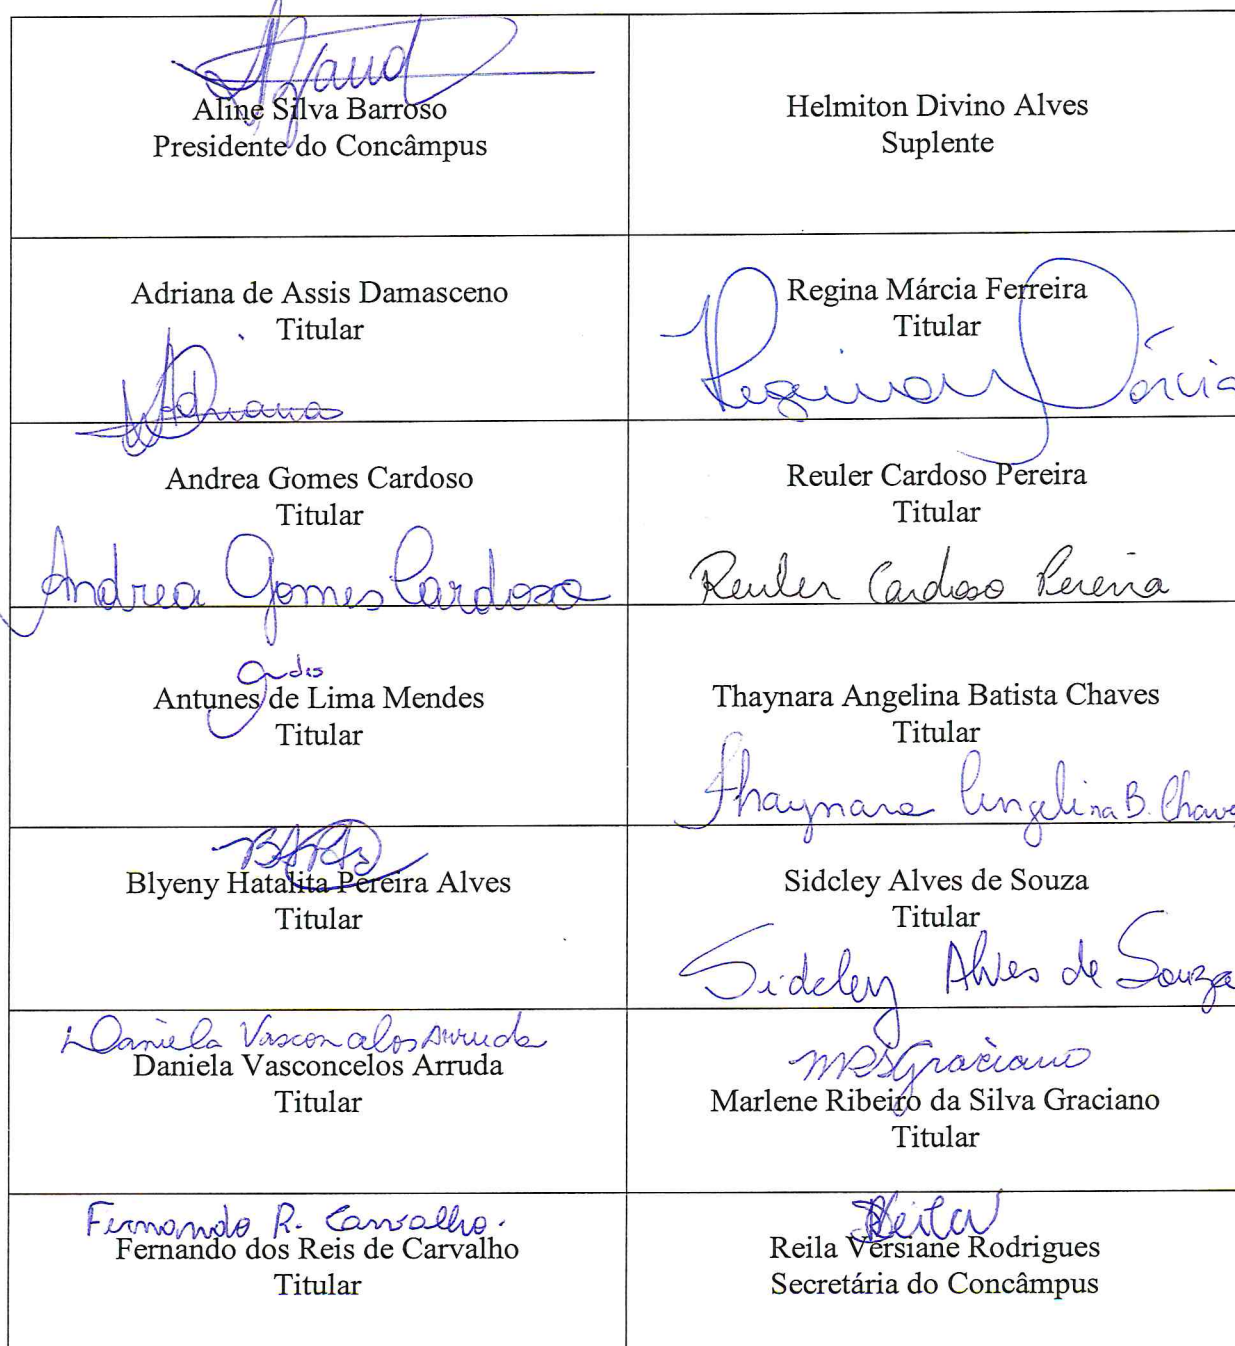 Aline Silva Barroso
Presidente do Concâmpus
Helmiton Divino Alves
Suplente
Adriana de Assis Damasceno
Titular
Adriana
Regina Márcia Ferreira
Titular
Regina Márcia
Andrea Gomes Cardoso
Titular
Andrea Gomes Cardoso
Reuler Cardoso Pereira
Titular
Reuler Cardoso Pereira
Antunes de Lima Mendes
Titular
Thaynara Angelina Batista Chaves
Titular
Thaynara Angelina B. Chaves
Blyeny Hatalita Pereira Alves
Titular
Sidcley Alves de Souza
Titular
Sidcley Alves de Souza
Daniela Vasconcelos Arruda
Daniela Vasconcelos Arruda
Titular
MRSGraciano
Marlene Ribeiro da Silva Graciano
Titular
Fernando R. Carvalho.
Fernando dos Reis de Carvalho
Titular
Reila
Reila Versiane Rodrigues
Secretária do Concâmpus